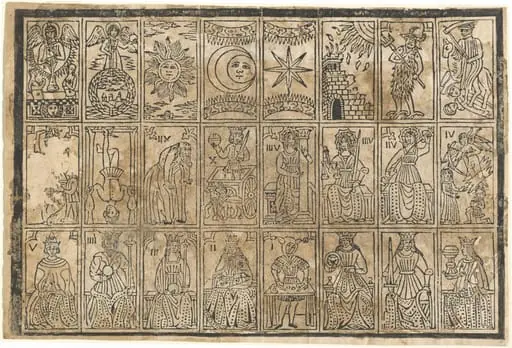 IIX X IIIV IIIV IIV IV
V IIII III II